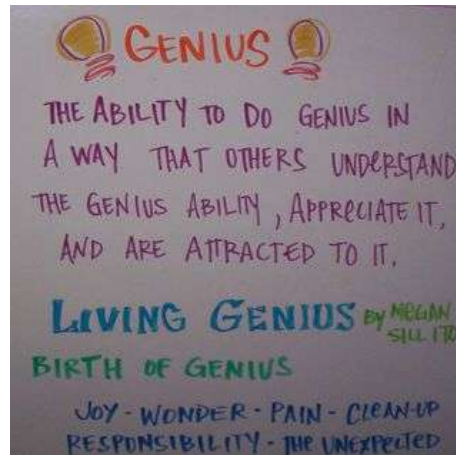 GENIUS
THE ABILITY TO DO GENIUS IN
A WAY THAT OTHERS UNDERSTAND
THE GENIUS ABILITY, APPRECIATE IT,
AND ARE ATTRACTED TO IT.
LIVING GENIUS BY MEGAN
SILLITO
BIRTH OF GENIUS
JOY - WONDER - PAIN - CLEAN-UP
RESPONSIBILITY - THE UNEXPECTED